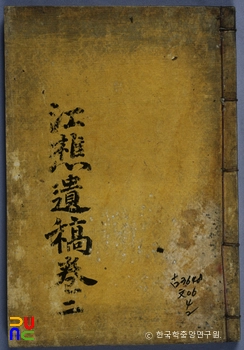 江樵遺稿卷二
古3648
文06
2
© 한국학중앙연구원